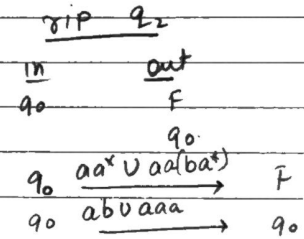 rip q₂
in out
q₀ F
q₀.
q₀ aa* ∪ aa(ba*) → F
q₀ ab∪aaa → q₀